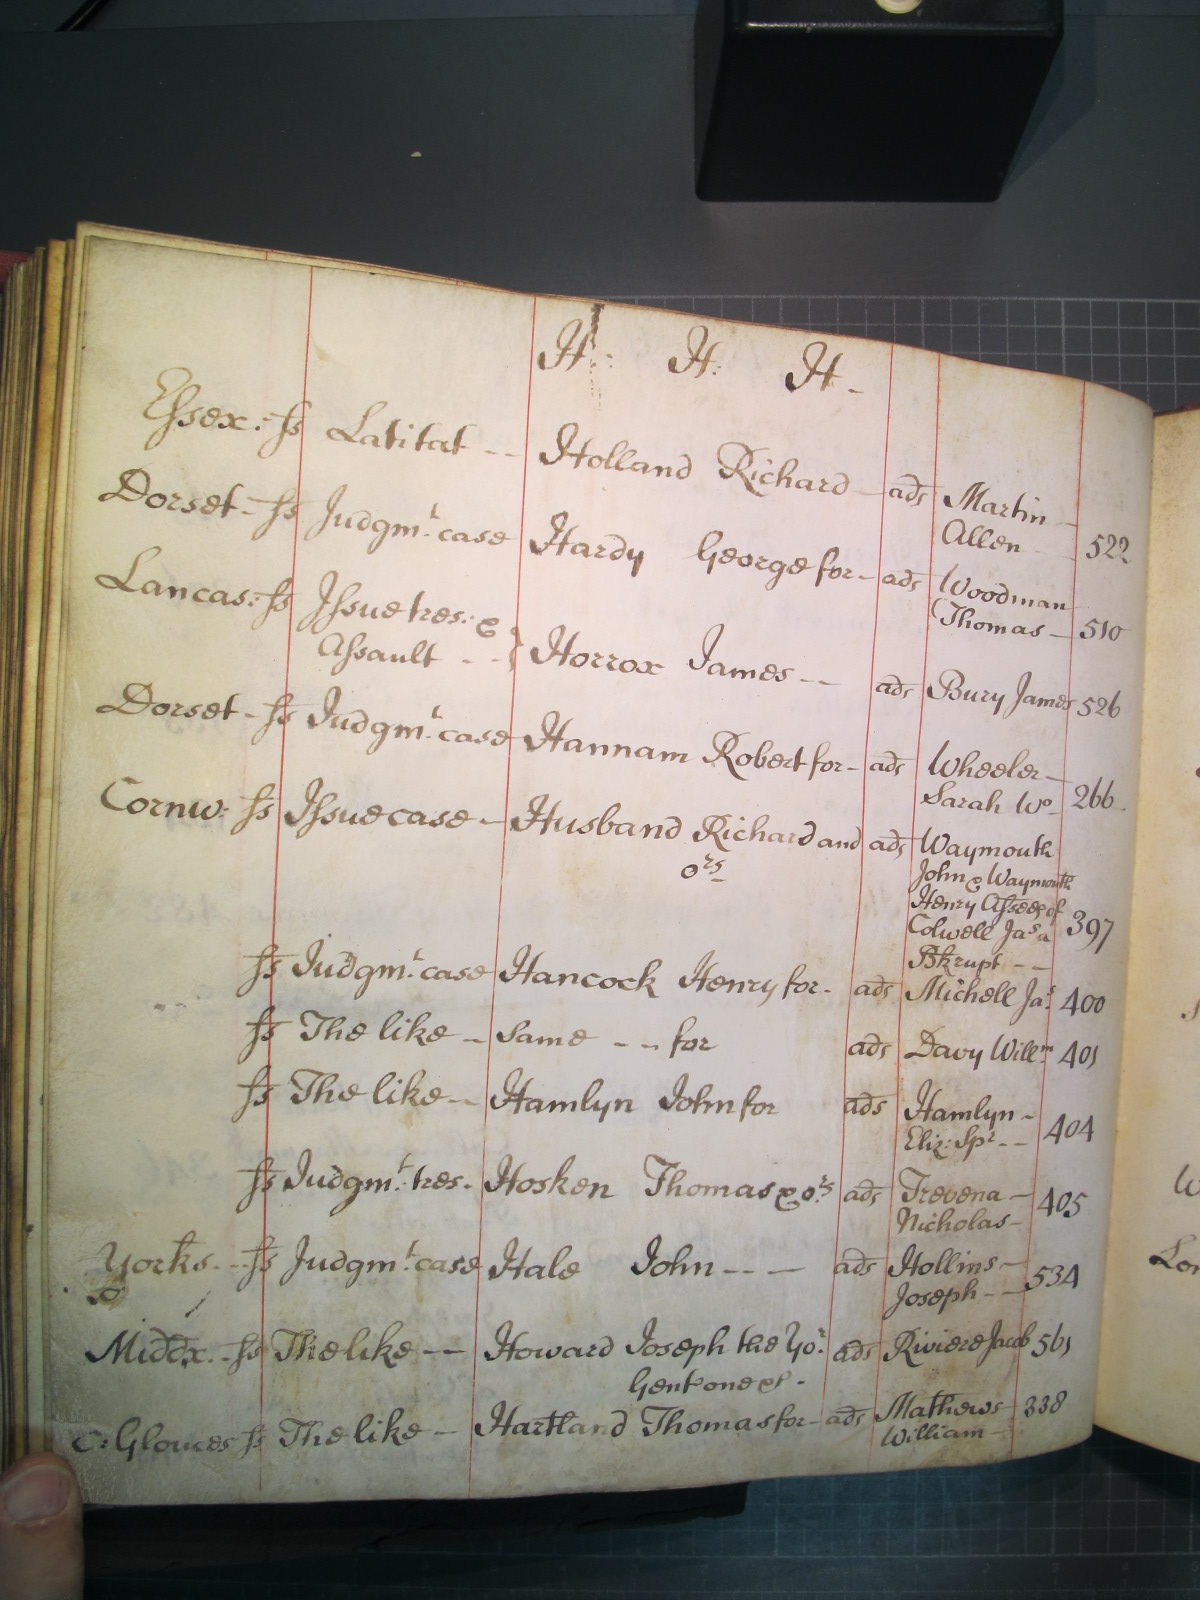 H: H: H -
Essex: ss Latitat -- Holland Richard - ads Martin -
Allen - 522
Dorset - ss Judgm.t case Hardy George for - ads Woodman
Thomas - 510
Lancas: ss Issue tres: &
Assault - - } Horrox James -- ads Bury James 526
Dorset - ss Judgm.t case Hannam Robert for - ads Wheeler -
Sarah Wo - 266
Cornw: ss Issue case - Husband Richard and ads Waymouth
ors John & Waymouth
Henry Assees of
Colwell Jas a 397
Bkrupt --
ss Judgm.t case Hancock Henry for - ads Michell Jas 400
ss The like - Same - - for ads Davy Willm 401
ss The like -- Hamlyn John for ads Hamlyn -
Eliz: Spr -- 404
ss Judgm.t tres. Hosken Thomas & ors ads Trevena -
Nicholas - 405
Yorks. - ss Judgm.t case Hale John --- ads Hollins -
Joseph -- 534
Middx. - ss The like -- Howard Joseph the Yor. ads Riviere Jacob 561
Gent one &c -
C: Glouces ss The like - Hartland Thomas for - ads Mathews - 338
William -
Lon